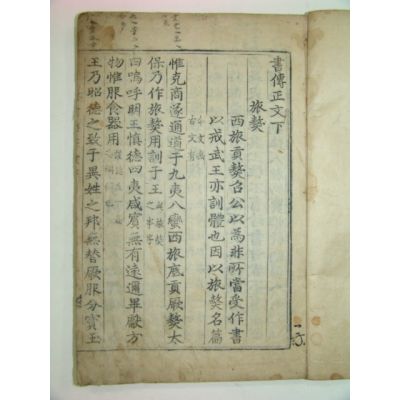 書傳正文下
旅獒
西旅貢獒召公以為非所當受作書
以戒武王亦訓體也因以旅獒名篇
今文無
古文有
惟克商遂通道于九夷八蠻西旅底貢厥獒太
保乃作旅獒用訓于王
曰嗚呼明王慎德四夷咸賓無有遠邇畢獻方
物惟服食器用
王乃昭德之致于異姓之邦無替厥服分寶玉